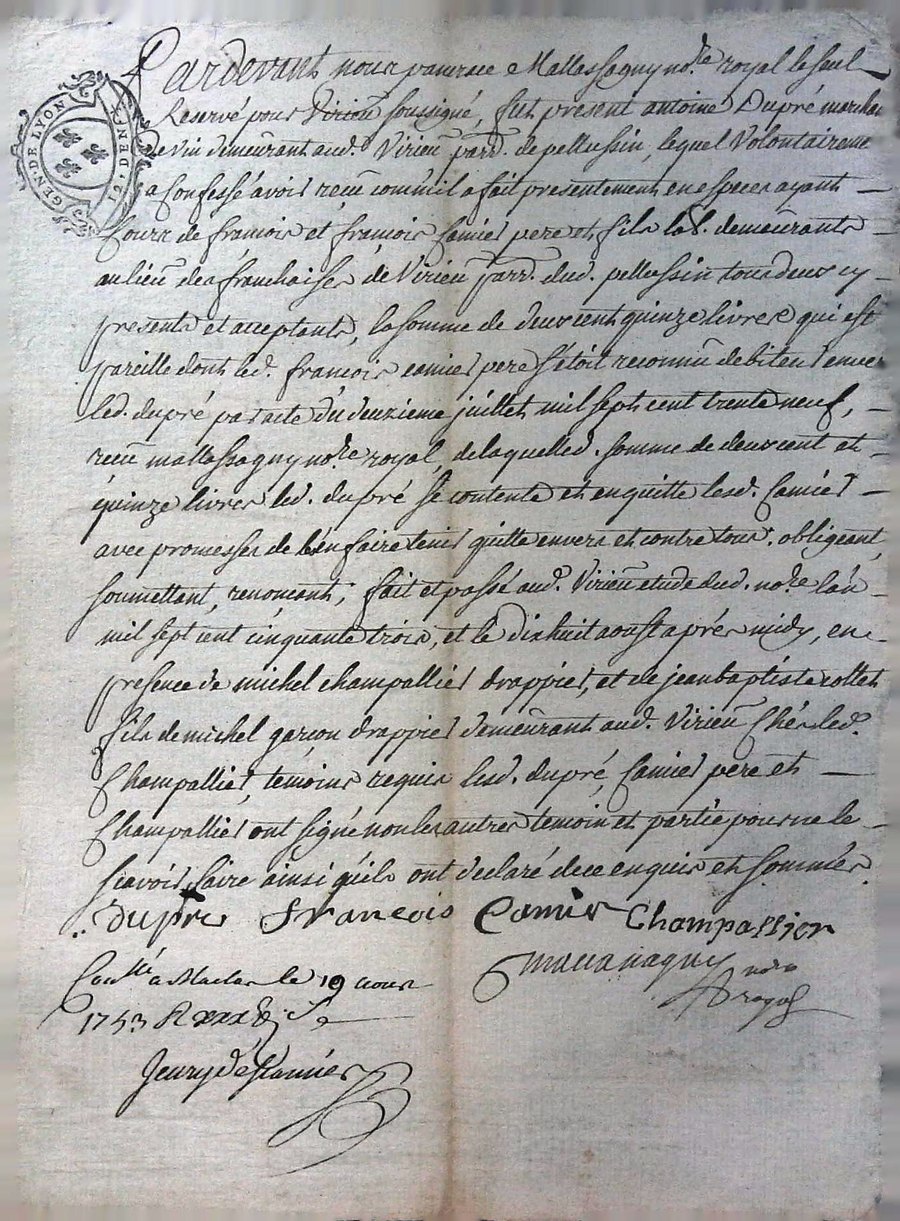 GEN. DE LYON
12. DEN.
Pardevant nous pancrace Mallassagny no.re royal le seul
Reservé pour Virieu soussigné, fut present antoine Dupré marchan
De vin demeurant aud. Virieu parr. de pellussin, lequel Volontaireme
a Confessé avoir receu comm'il a fait presentement en especes ayant
Cours de francois et francois Camier pere et fils lab. demeurants
au lieu de a franchaise de Virieu parr. dud. pellussin tous deux cy
presents et acceptants, la somme de deux cent quinze livres qui est
pareille dont led. francois camier pere s'etoit reconnu debiteur enver
led. dupré par acte du deuzieme juillet mil sept cent trente neuf,
receu mallassagny no.re royal, de laquelle d. somme de deux cent et
quinze livres led. dupré se contente et en quitte lesd. Camier
avec promesses de les en faire tenir quitte envers et contre tous. obligeant,
soumettant, renoncant, fait et passé aud. Virieu etude dud. no.re l'an
mil sept cent cinquante trois, et le dixhuit aoust aprés midy, en
presence de michel champallier drappier, et de jean baptiste rollet
fils de michel garcon drappier demeurant aud. Virieu Chés led.
Champallier, temoins requis lesd. dupré, Camier pere et
Champallier ont signé non les autres temoin et partie pour ne le
scavoir faire ainsi qu'ils ont declaré de ce enquis et sommés.
Dupre francois Camier Champallier
Mallassagny no.re
royal
Con.llé a Maclas le 19 aous
1753 R